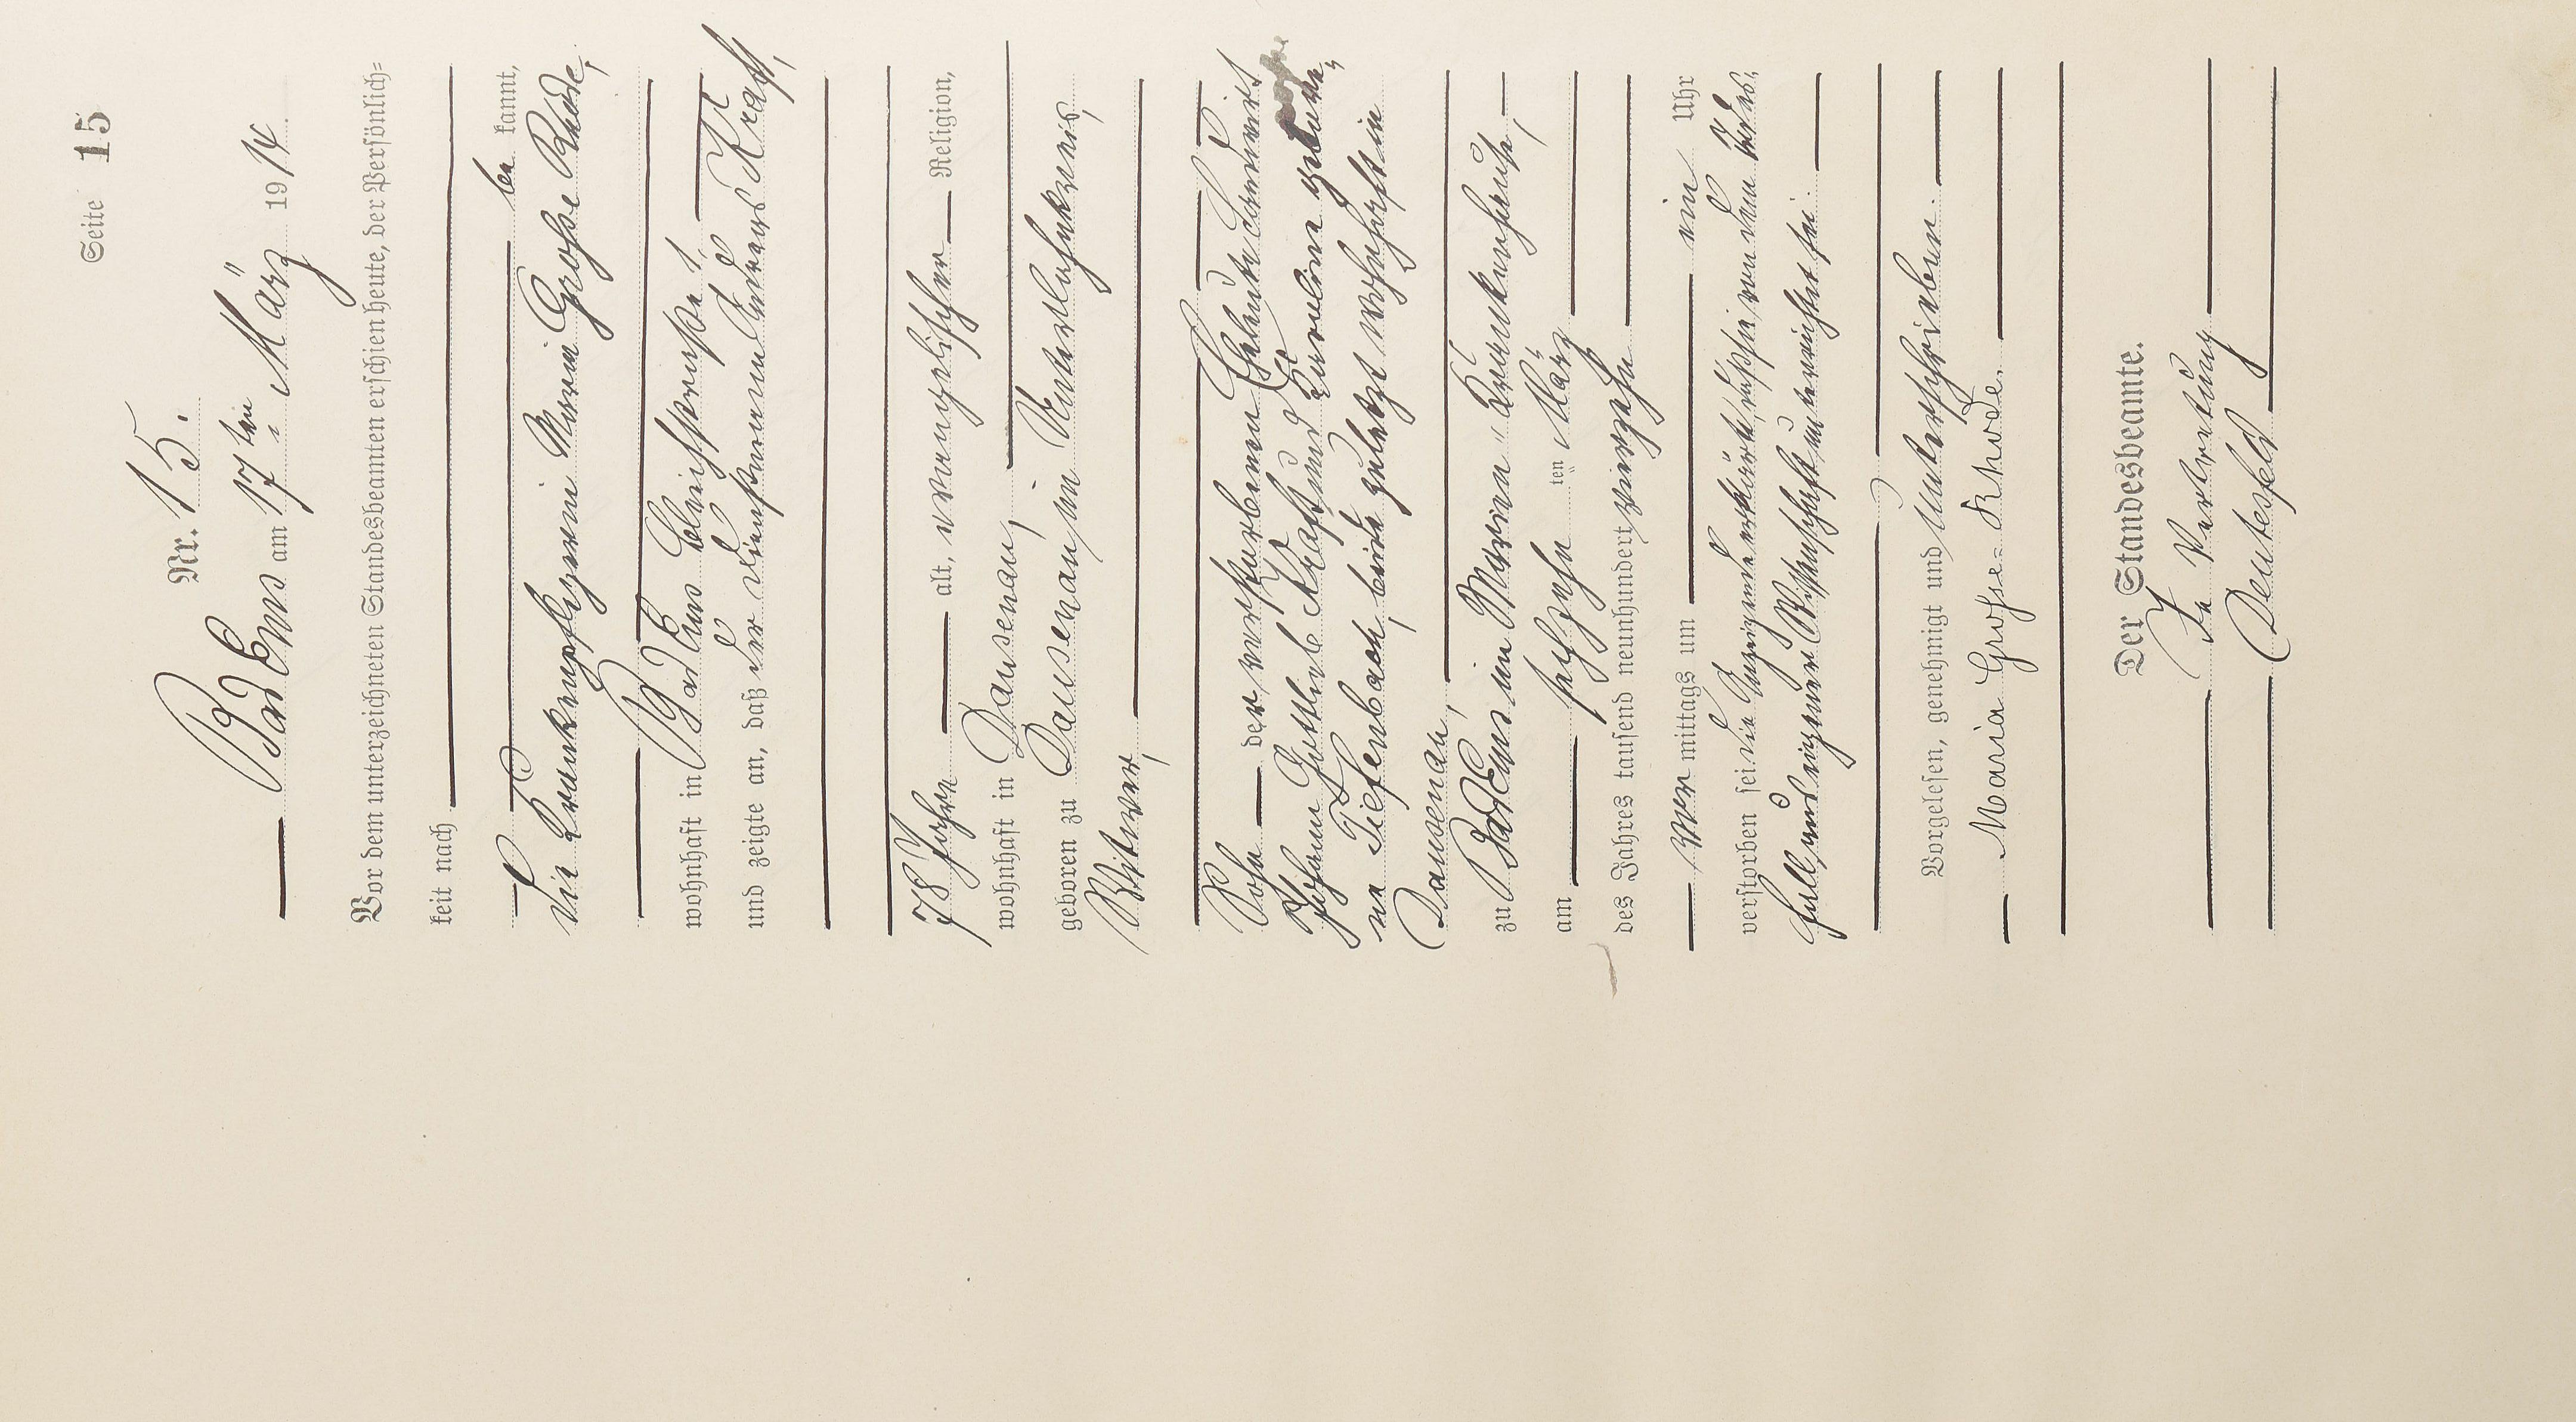 Seite 15
Nr. 15.
Bad Ems am 17ten März 1914.
Vor dem unterzeichneten Standesbeamten erschien heute, der Persönlich-
keit nach
be kannt,
die Krankenpflegerin Maria Große Rhode,
wohnhaft in Bad Ems Bleichstraße 1,
und zeigte an, daß der Dienstmann Andreas Kraft,
78 Jahre alt, evangelischer Religion,
wohnhaft in Dausenau,
geboren zu Dausenau, im Unterlahnkreis,
Witwer,
Sohn der verstorbenen Eheleute Landwirt
Johann Gottlieb Kraft und Karoline gebore-
ne Tiefenbach, beide zuletzt wohnhaft in
Dausenau,
zu Bad Ems, im Marien-Krankenhause,
am sechszehn ten März
des Jahres tausend neunhundert vierzehn
Vor mittags um ein Uhr
verstorben sei. Die Anzeigende erklärte, daß sie von dem Todes-
fall aus eigener Wissenschaft unterrichtet sei.
Vorgelesen, genehmigt und unterschrieben.
Maria Grosse-Rhode.
Der Standesbeamte.
In Vertretung
Deutesfeld